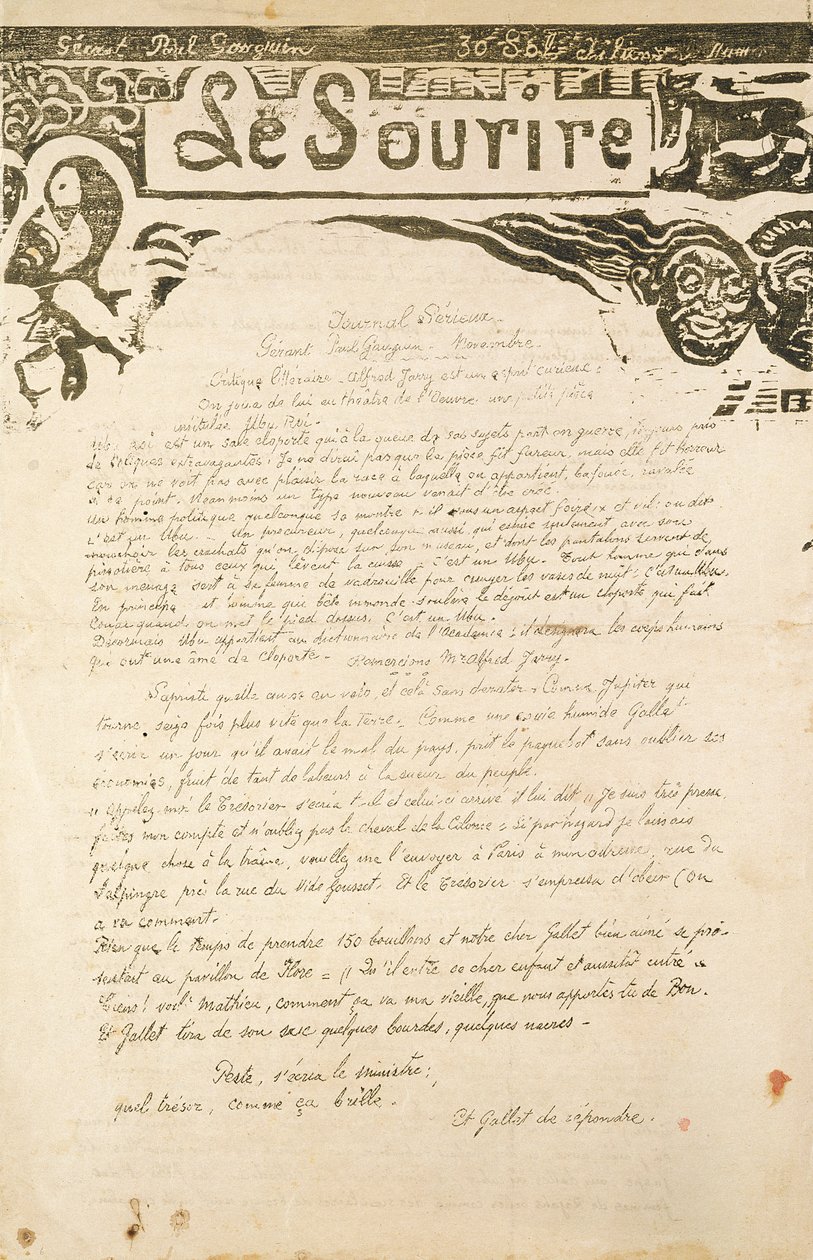 Gérant Paul Gauguin 30 Sol
Le Sourire
Journal Sérieux
Gérant Paul Gauguin - Novembre -
Critique littéraire - Alfred Jarry est un esprit curieux :
On joua de lui au théâtre de l'Oeuvre une petite pièce
intitulée Ubu Roi.
Ubu roi est un sale cloporte qui à la queue de ses sujets part en guerre, toujours
de coliques extravagantes! Je ne dirai pas que la pièce fit fureur, mais elle fit horreur
car on ne voit pas avec plaisir la race à laquelle on appartient, bafouée, ravalée
à ce point. Néanmoins un type nouveau venait d'être créé.
Un homme politique quelconque se montre t-il sous un aspect foireux et vil: on dit
c'est un Ubu. Un procureur, quelconque aussi, qui essuie seulement avec son
mouchoir les crachats qu'on dépose sur son museau, et dont les pantalons servent de
pissotière à tous ceux qui lèvent la cuisse - c'est un Ubu. Tout homme qui dans
son ménage sert à sa femme de vadrouille pour essuyer les vases de nuit: c'est un Ubu.
En principe et comme bête immonde soulève le dégout est un cloporte qui fait
quand on met le pied dessus, c'est un Ubu.
Désormais Ubu appartient au dictionnaire de l'Académie: il désignera les corps humains
qui ont une âme de cloporte - Remercions Mr Alfred Jarry.
Sapristi quelle et celà sans dérater - Comme Jupiter qui
tourne seize fois plus vite que la Terre. Comme une humide Gallet
s'écrie un jour qu'il avait le mal du pays, prit le paquebot sans oublier ses
économies, fruit de tant de labeurs à la sueur du peuple.
" Appelez-moi le Trésorier s'écria t-il et celui-ci arrivé il lui dit " Je suis très pressé,
faites mon compte et n'oubliez pas le cheval de la Colonie = Si par hazard je laissais
quelque chose à la traîne, veuillez me l'envoyer à Paris à mon adresse, rue du
près la rue du Vide Gousset. Et le Trésorier s'empressa d'obéir (on
a vu comment.
Rien que le temps de prendre 150 bouillons et notre cher Gallet bien aimé se pré-
sentait au pavillon de Flore = " Qu'il entre ce cher enfant et aussitôt entré
Tiens! voilà Mathieu, comment ça va ma vieille, que nous apportes tu de Bon.
Et Gallet tira de son sac quelques bourdes, quelques nacres -
Peste, s'écria le ministre:,
quel trésor, comme ça brille.
Et Gallet de répondre.